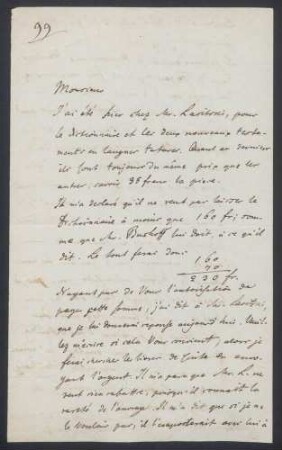 99
Monsieur
J'ai été hier chez Mr. Lavitoni, pour
le dictionnaire et les deux nouveaux testa-
ments en langue tatare. Quant au dernier
ils sont toujours du même prix que les
autres, savoir 35 francs la pièce.
Il m'a déclaré qu'il ne veut pas laisser le
Dictionnaire à moins que 160 fr;
que Mr. lui doit, à ce qu'il
dit. Le tout ferai donc
160
70
230 fr.
N'ayant pas de Vous l'autorisation de
payer cette somme, j'ai dit à Mr.
que je lui donnerai reponse aujourd'hui. Veuil-
lez m'écrire si cela Vous convient, alors je
ferai chercher les livres de suite en envoy-
ant l'argent. Il m'a paru que Mr. L. ne
veut rien rabattre, puisqu'il connait la
rareté de l'ouvrage. Il m'a dit que si je ne
le voulais pas, il l'emporterait avec lui à